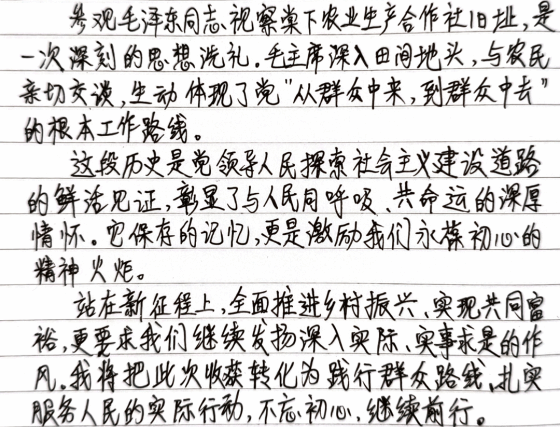 参观毛泽东同志视察棠下农业生产合作社旧址,是
一次深刻的思想洗礼。毛主席深入田间地头,与农民
亲切交谈,生动体现了党"从群众中来,到群众中去"
的根本工作路线。
这段历史是党领导人民探索社会主义建设道路
的鲜活见证,彰显了与人民同呼吸、共命运的深厚
情怀。它保存的记忆,更是激励我们永葆初心的
精神火炬。
站在新征程上,全面推进乡村振兴、实现共同富
裕,更要求我们继续发扬深入实际、实事求是的作
风。我将把此次收获转化为践行群众路线、扎实
服务人民的实际行动,不忘初心,继续前行。